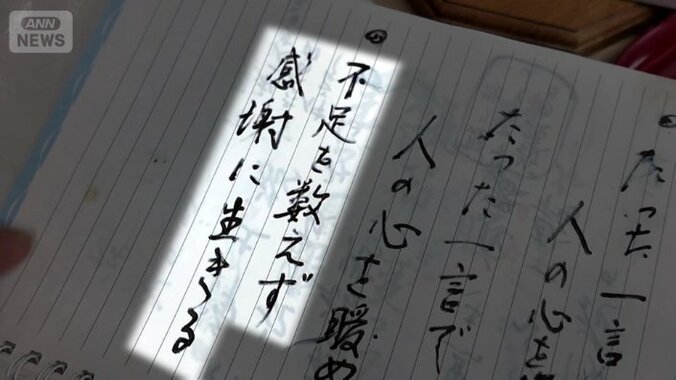 ANN
NEWS
たった一言
人の心を
たった一言で
人の心を暖め
不足を数えず
感謝に生きる